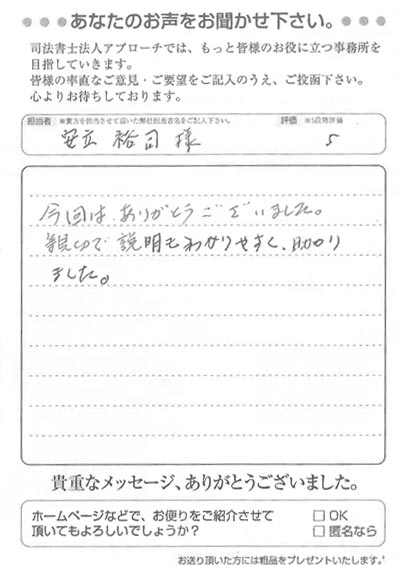 あなたのお声をお聞かせ下さい。
司法書士法人アプローチでは、もっと皆様のお役に立つ事務所を
目指していきます。
皆様の率直なご意見・ご要望をご記入のうえ、ご投函下さい。
心よりお待ちしております。
担当者 ※貴方を担当させて頂いた弊社担当者名をご記入下さい。 評価 ※5段階評価
安立 裕司 様 5
今回は、ありがとうございました。
親切で説明もわかりやすく、助かり
ました。
貴重なメッセージ、ありがとうございました。
ホームページなどで、お便りをご紹介させて □ OK
頂いてもよろしいでしょうか? □ 匿名なら
お送り頂いた方には粗品をプレゼントいたします。